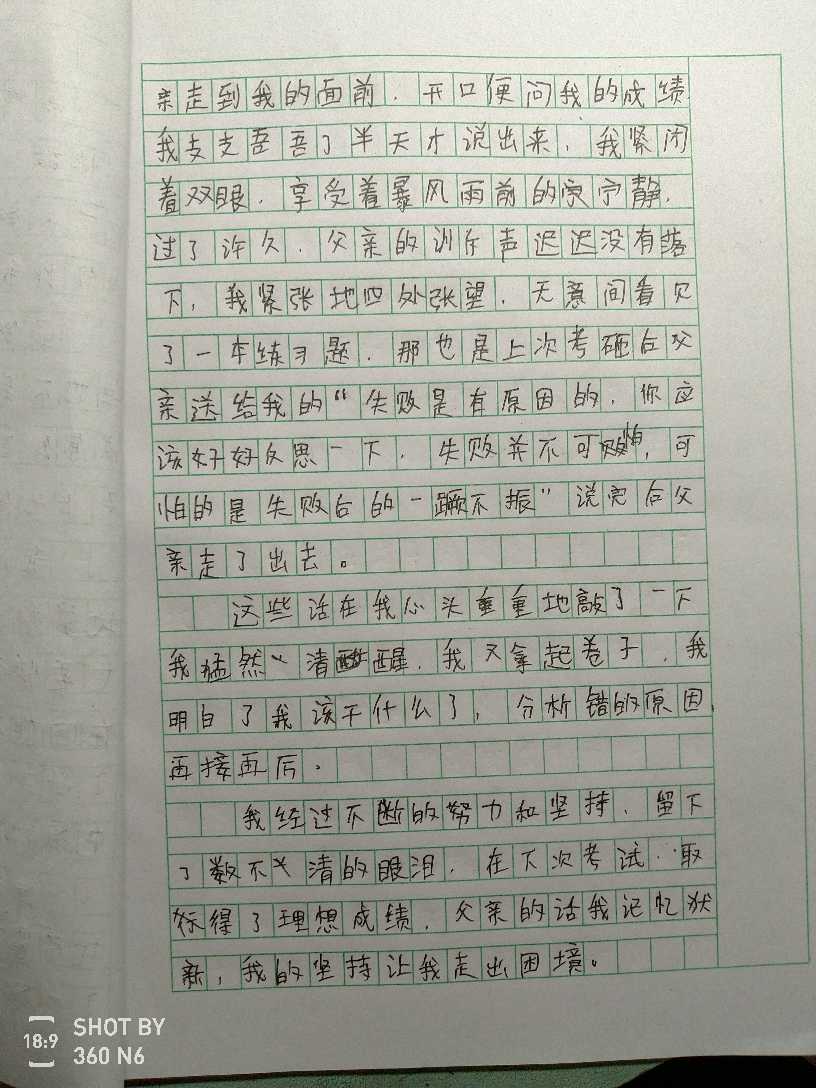 亲走到我的面前，开口便问我的成绩
我支支吾吾了半天才说出来，我紧闭
着双眼，享受着暴风雨前的宁静，
过了许久，父亲的训斥声迟迟没有落
下，我紧张地四处张望，无意间看见
了一本练习题，那也是上次考砸后父
亲送给我的“失败是有原因的，你应
该好好反思一下，失败并不可怕，可
怕的是失败后的一蹶不振”说完后父
亲走了出去。
这些话在我心头重重地敲了一下
我猛然清醒，我又拿起卷子，我
明白了我该干什么了，分析错的原因，
再接再厉。
我经过不断的努力和坚持，留下
了数不清的眼泪，在下次考试，取
得了理想成绩，父亲的话我记忆犹
新，我的坚持让我走出困境。
18:9
SHOT BY
360 N6